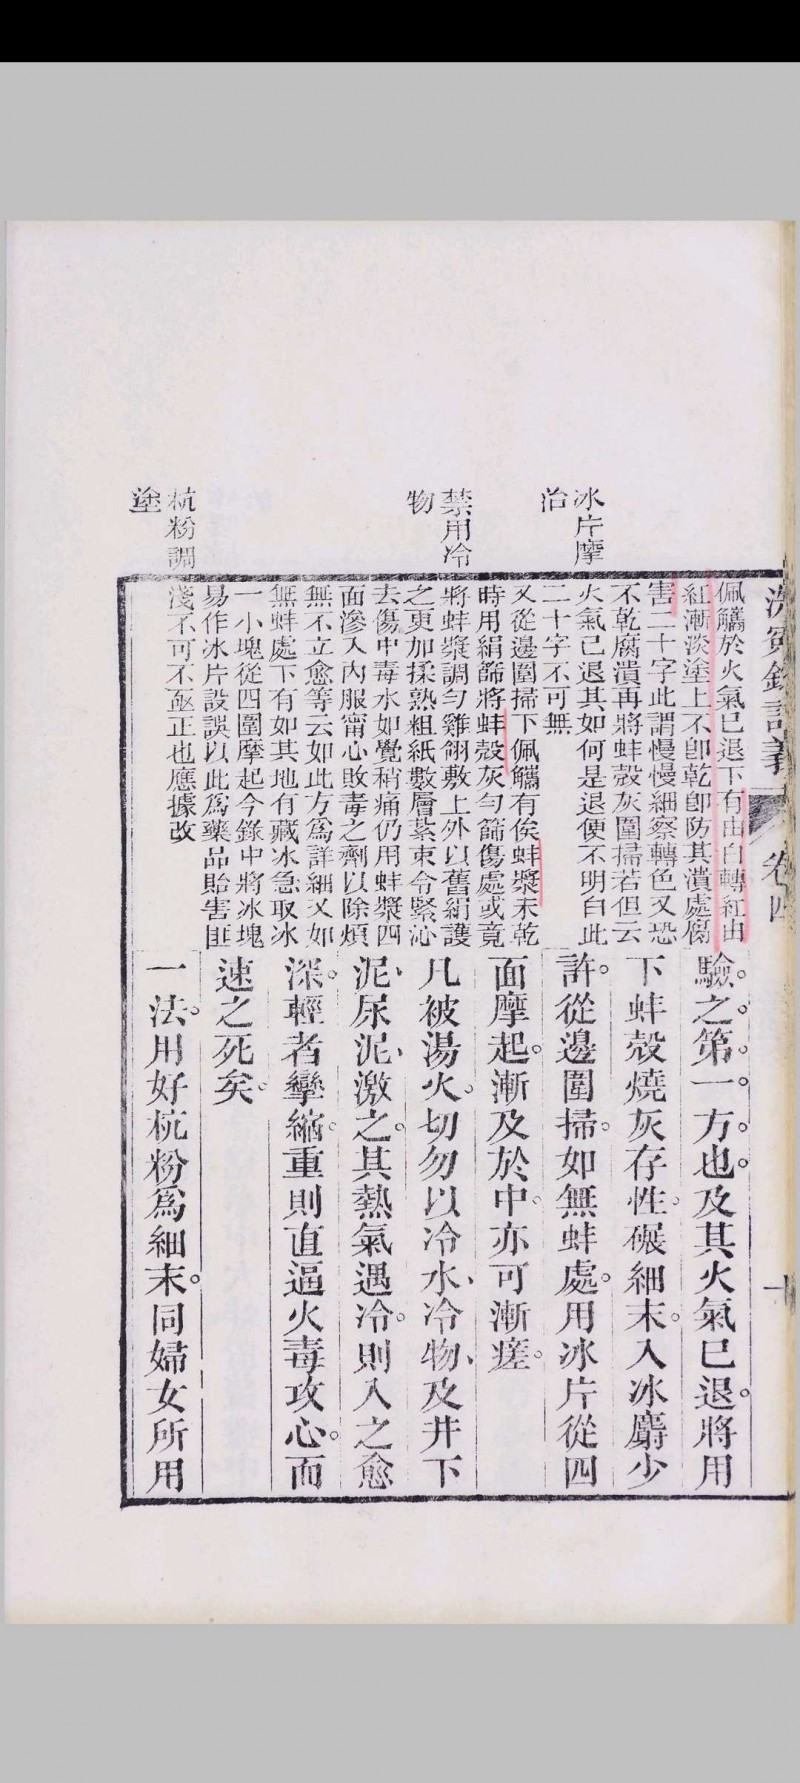 洗冤錄詳義 卷四 十
冰片摩
治
禁用冷
物
杭粉調
塗
佩觿於火氣已退下有由白轉紅由
紅漸淡塗上不卽乾卽防其潰處腐
害二十字此謂慢慢細察轉色又恐
不乾腐潰再將蚌殼灰圍掃若但云
火氣已退其如何是退便不明白此
二十字不可無
又從邊圍掃下佩觿有俟蚌漿未乾
時用絹篩將蚌殼灰勻篩傷處或竟
將蚌漿調勻雞翎敷上外以舊絹護
之更加揉熟粗紙數層紮束令緊沁
去傷中毒水如覺稍痛仍用蚌漿四
面滲入內服甯心敗毒之劑以除煩
無不立愈等云如此方爲詳細又如
無蚌處下有如其地有藏冰急取冰
一小塊從四圍摩起今錄中將冰塊
易作冰片設誤以此爲藥品貽害匪
淺不可不亟正也應據改
驗之第一方也及其火氣已退將用
下蚌殼燒灰存性碾細末入冰麝少
許從邊圍掃如無蚌處用冰片從四
面摩起漸及於中亦可漸瘥
凡被湯火切勿以冷水冷物及井下
泥尿泥激之其熱氣遇冷則入之愈
深輕者攣縮重則直逼火毒攻心而
速之死矣
一法用好杭粉爲細末同婦女所用